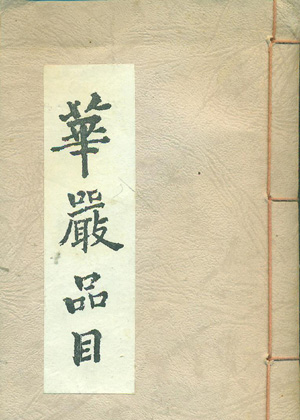 華嚴品目